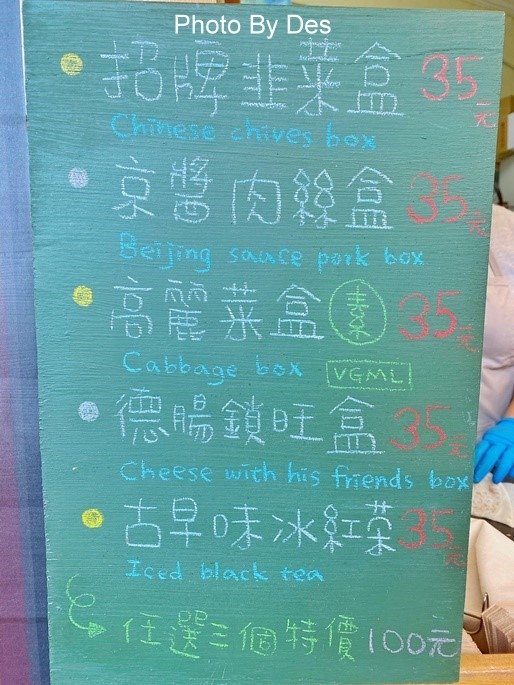 Photo By Des
招牌韭菜盒 35元
Chinese chives box
京醬肉絲盒 35元
Beijing sauce pork box
高麗菜盒 素 35元
Cabbage box VGML
德腸鎖旺盒 35元
Cheese with his friends box
古早味冰紅茶 35元
Iced black tea
任選三個特價100元